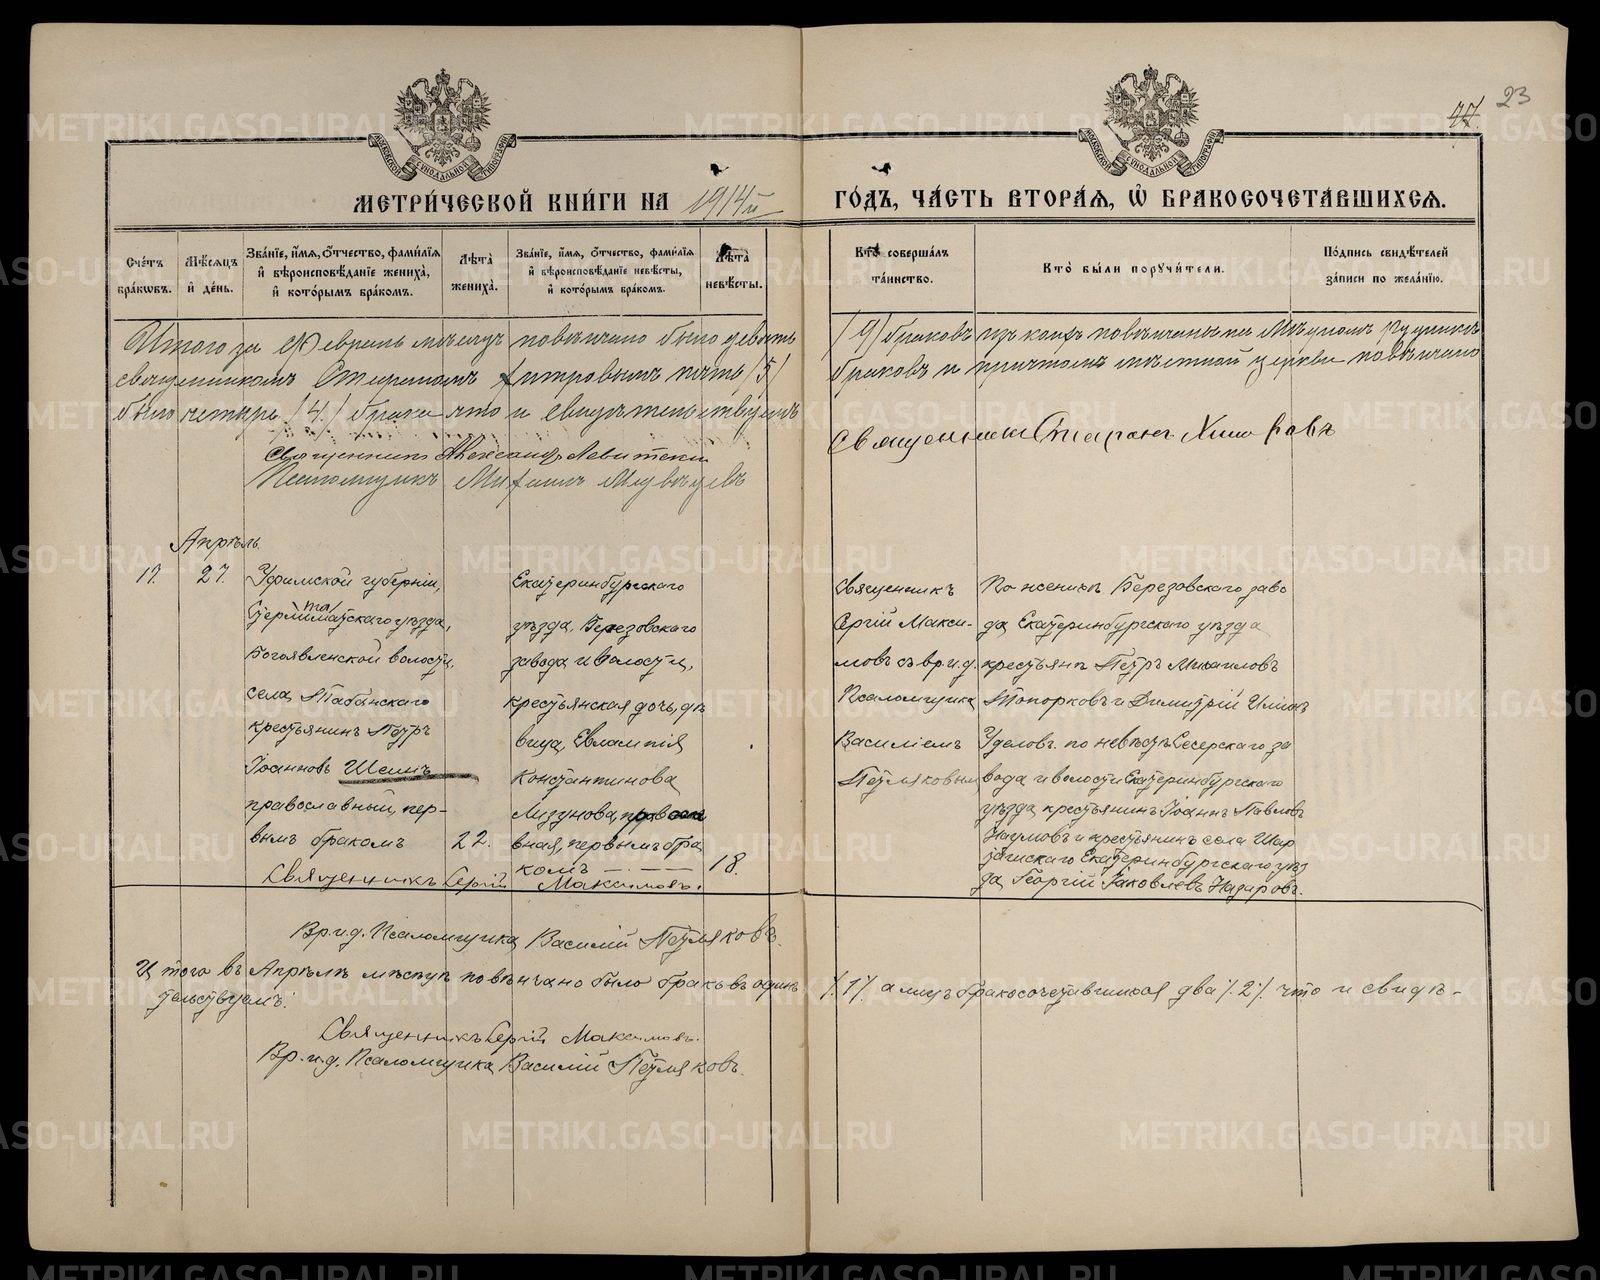 23
МЕТРИ́ЧЕСКОЙ КНИ́ГИ НА 1914й ГО́ДЪ, ЧА́СТЬ ВТОРА́Я, Ѡ БРАКОСОЧЕТА́ВШИХСЯ.
Сче́тъ бра́кѡвъ.
Мѣ́сяцъ и де́нь.
Зва́нїе, и́мя, ѻ́тчество, фами́лїя и вѣроисповѣ́данїе жениха̀, и кото́рымъ бра́комъ.
Лѣта̀ жениха̀.
Зва́нїе, и́мя, ѻ́тчество, фами́лїя и вѣроисповѣ́данїе невѣ́сты, и кото́рымъ бра́комъ.
Лѣта̀ невѣ́сты.
Кто̀ соверша́лъ та́инство.
Кто̀ бы́ли порꙋчи́тели.
По́дпись свидѣ́телей за́писи по жела́нїю.
Итого за Февраль мѣсяцъ повѣнчано было девять /9/ браковъ изъ коихъ повѣнчаны на Мѣдномъ рудникѣ
священникомъ Стефаномъ Хитровымъ пять /5/ браковъ и причтомъ мѣстной церкви повѣнчано
было четыре /4/ брака что и свидѣтельствуемъ
Священникъ Стефанъ Хитровъ
Священникъ Александръ Левитскій
Псаломщикъ Михаилъ Медвѣдевъ
Апрѣль.
17. 27.
Уфимской губерніи,
Стерлитамакскаго уѣзда,
Богоявленской волости,
села Табынскаго
крестьянинъ Петръ
Іоанновъ Шеминъ
православный, пер-
вымъ бракомъ
22.
Екатеринбургскаго
уѣзда, Березовскаго
завода и волости,
крестьянская дочь, дѣ
вица, Евлампія
Константинова
Лизунова, правосла
вная, первымъ бра
комъ
18.
Священникъ
Сергій Макси-
мовъ съ вр.и.д.
Псаломщика
Василіемъ
Петляковым
По женихѣ Березовскаго заво
да Екатеринбургскаго уѣзда
крестьянъ Петръ Михаиловъ
Топорковъ и Димитрій Иліинъ
Уделовъ. по невѣстѣ Сесерскаго за
вода и волости Екатеринбургскаго
уѣзда крестьянинъ Іоаннъ Павловъ
Наумовъ и крестьянинъ села Шар
ташскаго Екатеринбургскаго уѣз
да Георгій Іаковлевъ Назаровъ.
Священникъ Сергій Максимовъ.
Вр.и.д. Псаломщика Василій Петляковъ.
Итого въ Апрѣлѣ мѣсяцѣ повѣнчано было браковъ одинъ /.1/. а лицъ бракосочетавшихся два /.2/. что и свидѣ-
тельствуемъ:
Священникъ Сергій Максимовъ.
Вр.и.д. Псаломщика Василій Петляковъ.
METRIKI.GASO-URAL.RU